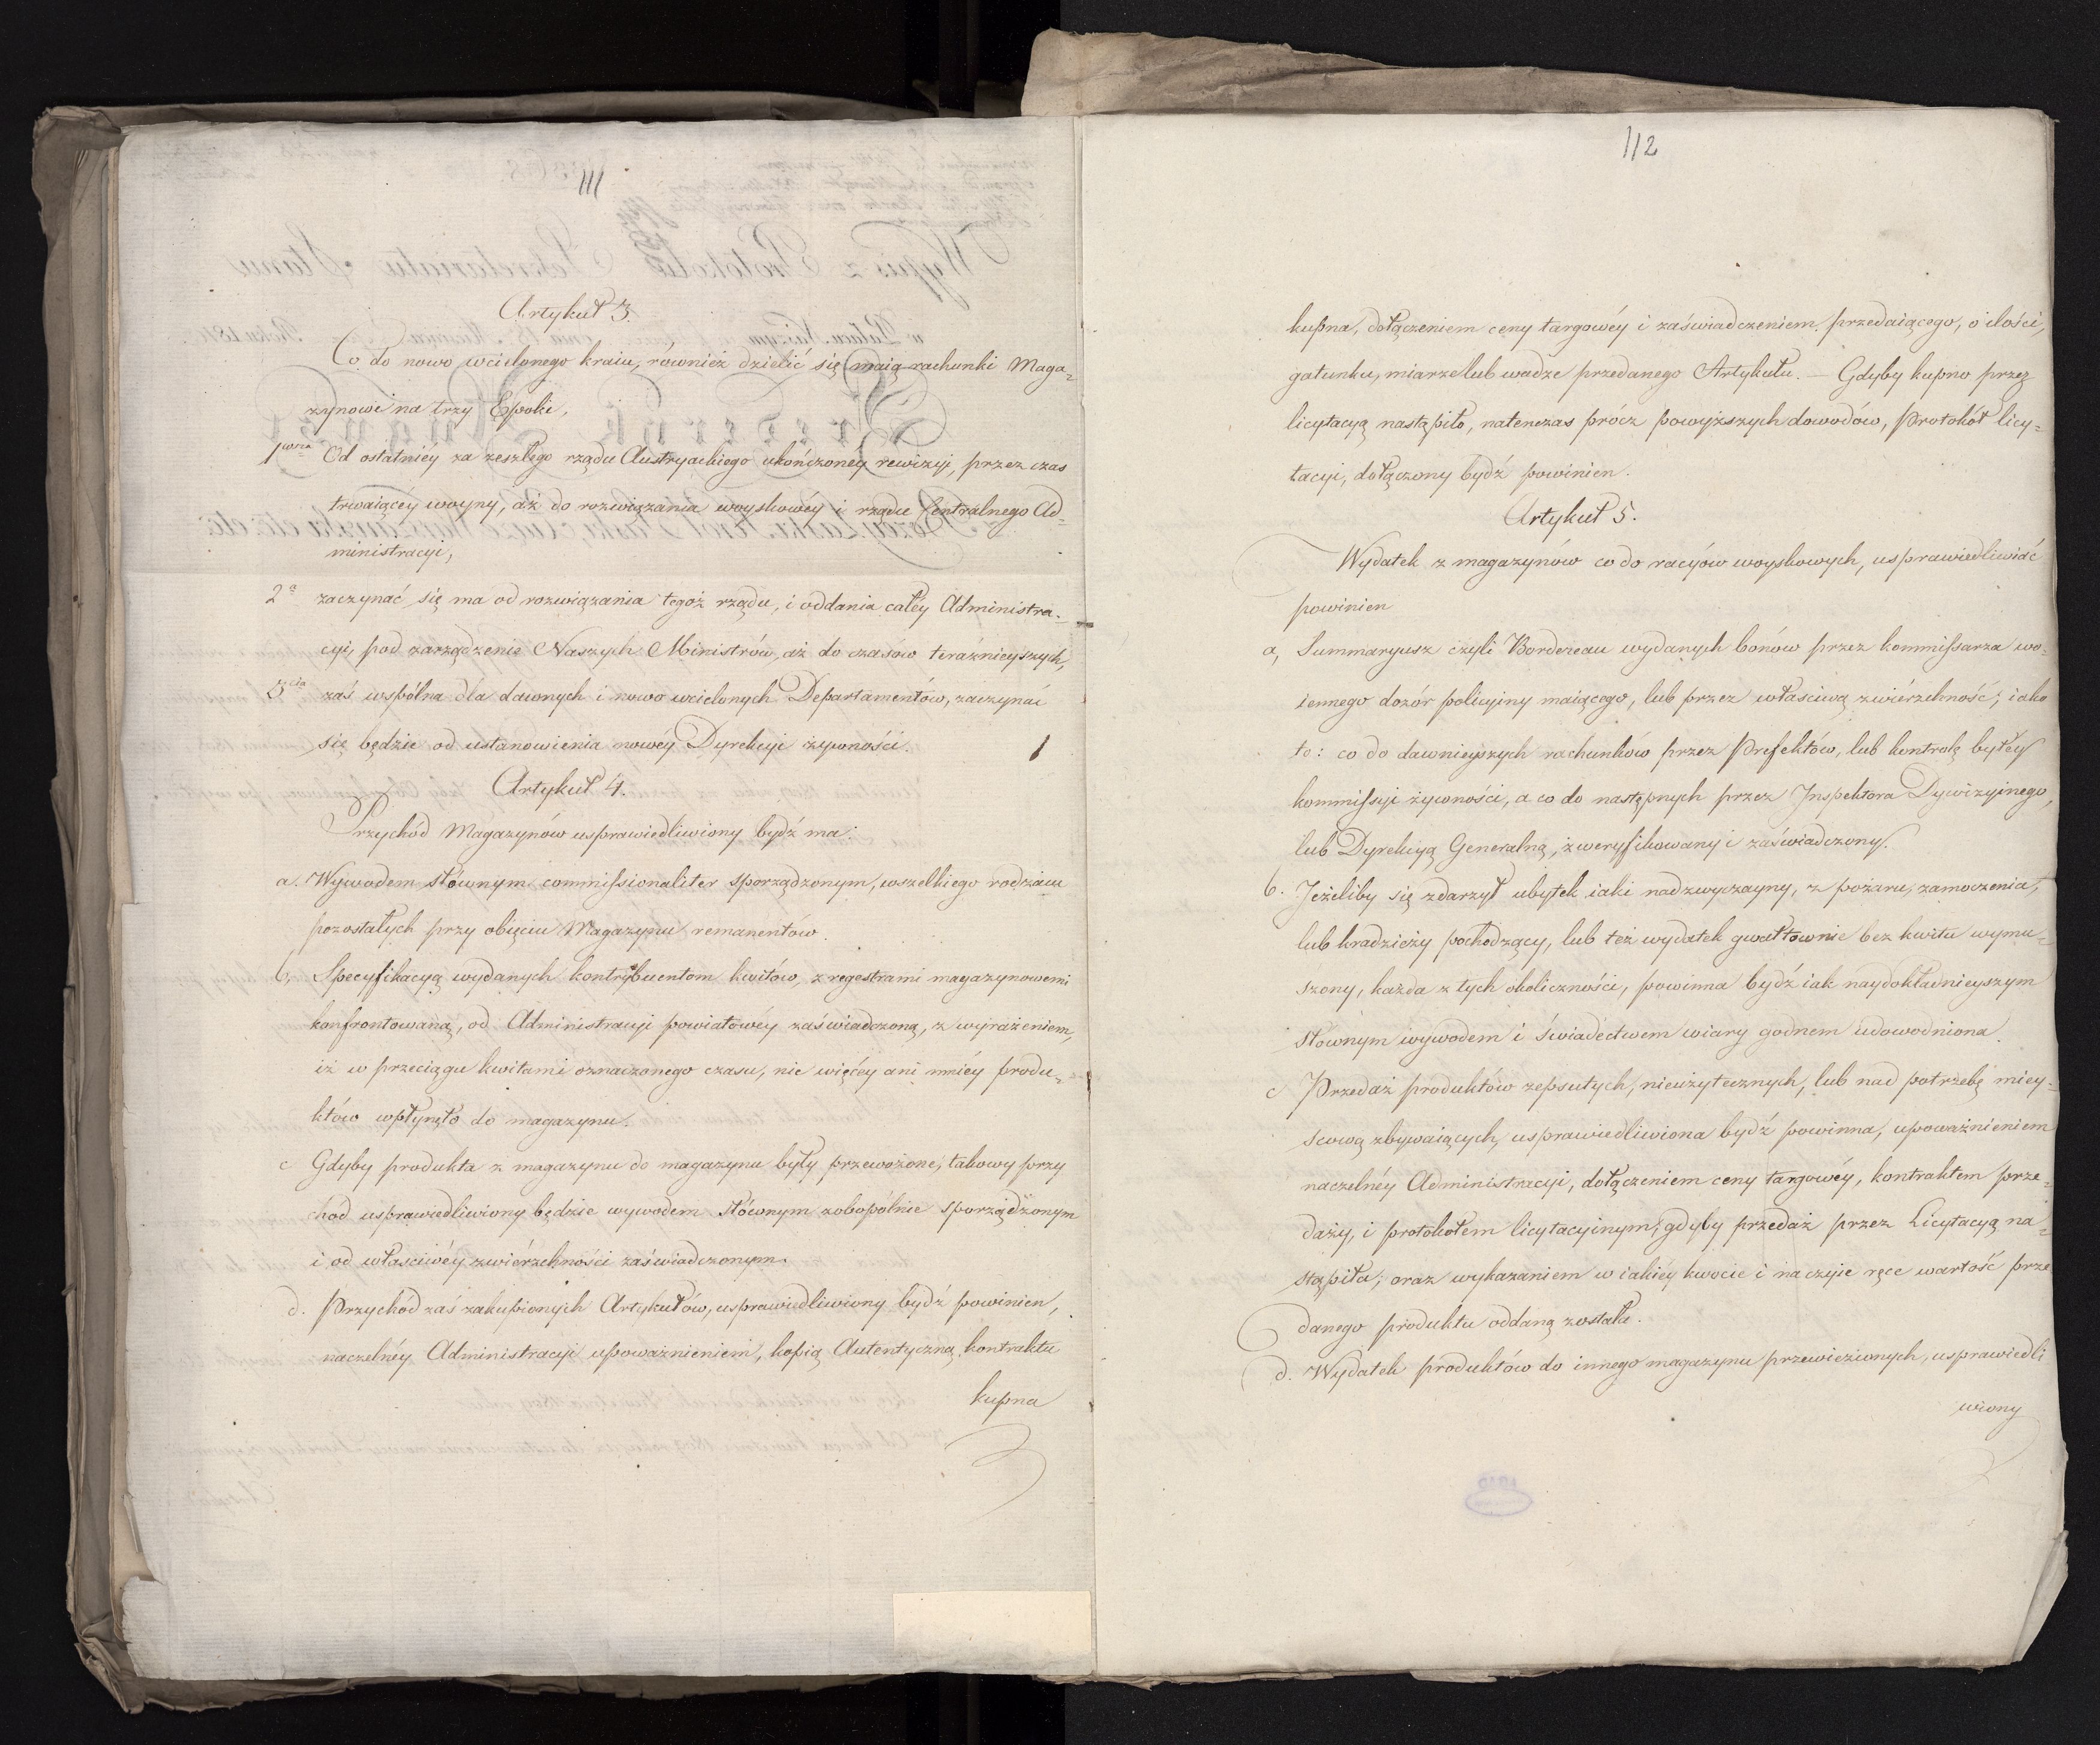 111
Artykuł 3.
Co do nowo wcielonego kraiu, również dzielić się maią rachunki Maga-
zynowe na trzy Epoki,
1wsza Od ostatniéy za zeszłego rządu Austryackiego ukończoney rewizyi, przez czas
trwaiącéy woyny, aż do rozwiązania woyskowéy i rządu Centralnego Ad-
ministracyi,
2a zaczynać się ma od rozwiązania tegoż rządu, i oddania całéy Administra-
cyi, pod zarządzenie Naszych Ministrów, aż do czasów teraźnieyszych,
3cia zaś wspólna dla dawnych i nowo wcielonych Departamentów, zaczynać
się będzie od ustanowienia nowéy Dyrekcyi żywności.
Artykuł 4.
Przychód Magazynów usprawiedliwiony bydź ma:
a. Wywodem słównym commissionaliter sporządzonym, wszelkiego rodzaiu
pozostałych przy obięciu Magazynu remanentów.
b, Specyfikacyą wydanych kontrybuentom kwitów, z regestrami magazynowemi
konfrontowaną, od Administracyi powiatowéy zaświadczoną, z wyrażeniem,
iż w przeciągu kwitami oznaczonego czasu, nic więcéy ani mniéy produ-
któw wpłynęło do magazynu.
c Gdyby produkta z magazynu do magazynu były przewożone, takowy przy
chód usprawiedliwiony będzie wywodem słównym zobopólnie sporządzonym
i od właściwéy zwiérzchności zaświadczonym.
d. Przychód zaś zakupionych Artykułów, usprawiedliwiony bydź powinien,
naczelnéy Administracyi upoważnieniem, kopią Autentyczną kontraktu
kupna
112
kupna, dołączeniem ceny targowéy i zaświadczeniem przedaiącego, o ilości,
gatunku, miarze lub wadze przedanego Artykułu. — Gdyby kupno przez
licytacyą nastąpiło, natenczas prócz powyższych dowodów, Protokół licy-
tacyi, dołączony bydź powinien.
Artykuł 5.
Wydatek z magazynów co do racyów woyskowych, usprawiedliwiać
powinien
a, Summaryusz czyli Bordereau wydanych bonów przez kommissarza wo-
iennego dozór policyiny maiącego, lub przez właściwą zwiérzchność; iako
to: co do dawnieyszych rachunków przez Prefektów, lub kontrolę byłéy
kommissyi żywności, a co do następnych przez Inspektora Dywizyinego,
lub Dyrekcyą Generalną, zweryfikowany i zaświadczony.
b. Jeżeliby się zdarzył ubytek iaki nadzwyczayny, z pożaru, zamoczenia,
lub kradzieży pochodzący, lub też wydatek gwałtownie bez kwitu wymu-
szony, każda z tych okoliczności, powinna bydź iak naydokładnieyszym
słownym wywodem i świadectwem wiary godnem udowodniona.
c Przedaż produktów zepsutych, nieużytecznych, lub nad potrzebę miey-
scową zbywaiących, usprawiedliwiona bydź powinna, upoważnieniem
naczelnéy Administracyi, dołączeniem ceny targowéy, kontraktem prze-
daży, i protokołem licytacyinym, gdyby przedaż przez Licytacyą na-
stąpiła; oraz wykazaniem w iakiéy kwocie i na czyie ręce wartość prze
danego produktu oddaną została.
d. Wydatek produktów do innego magazynu przewiezionych, usprawiedli
wiony